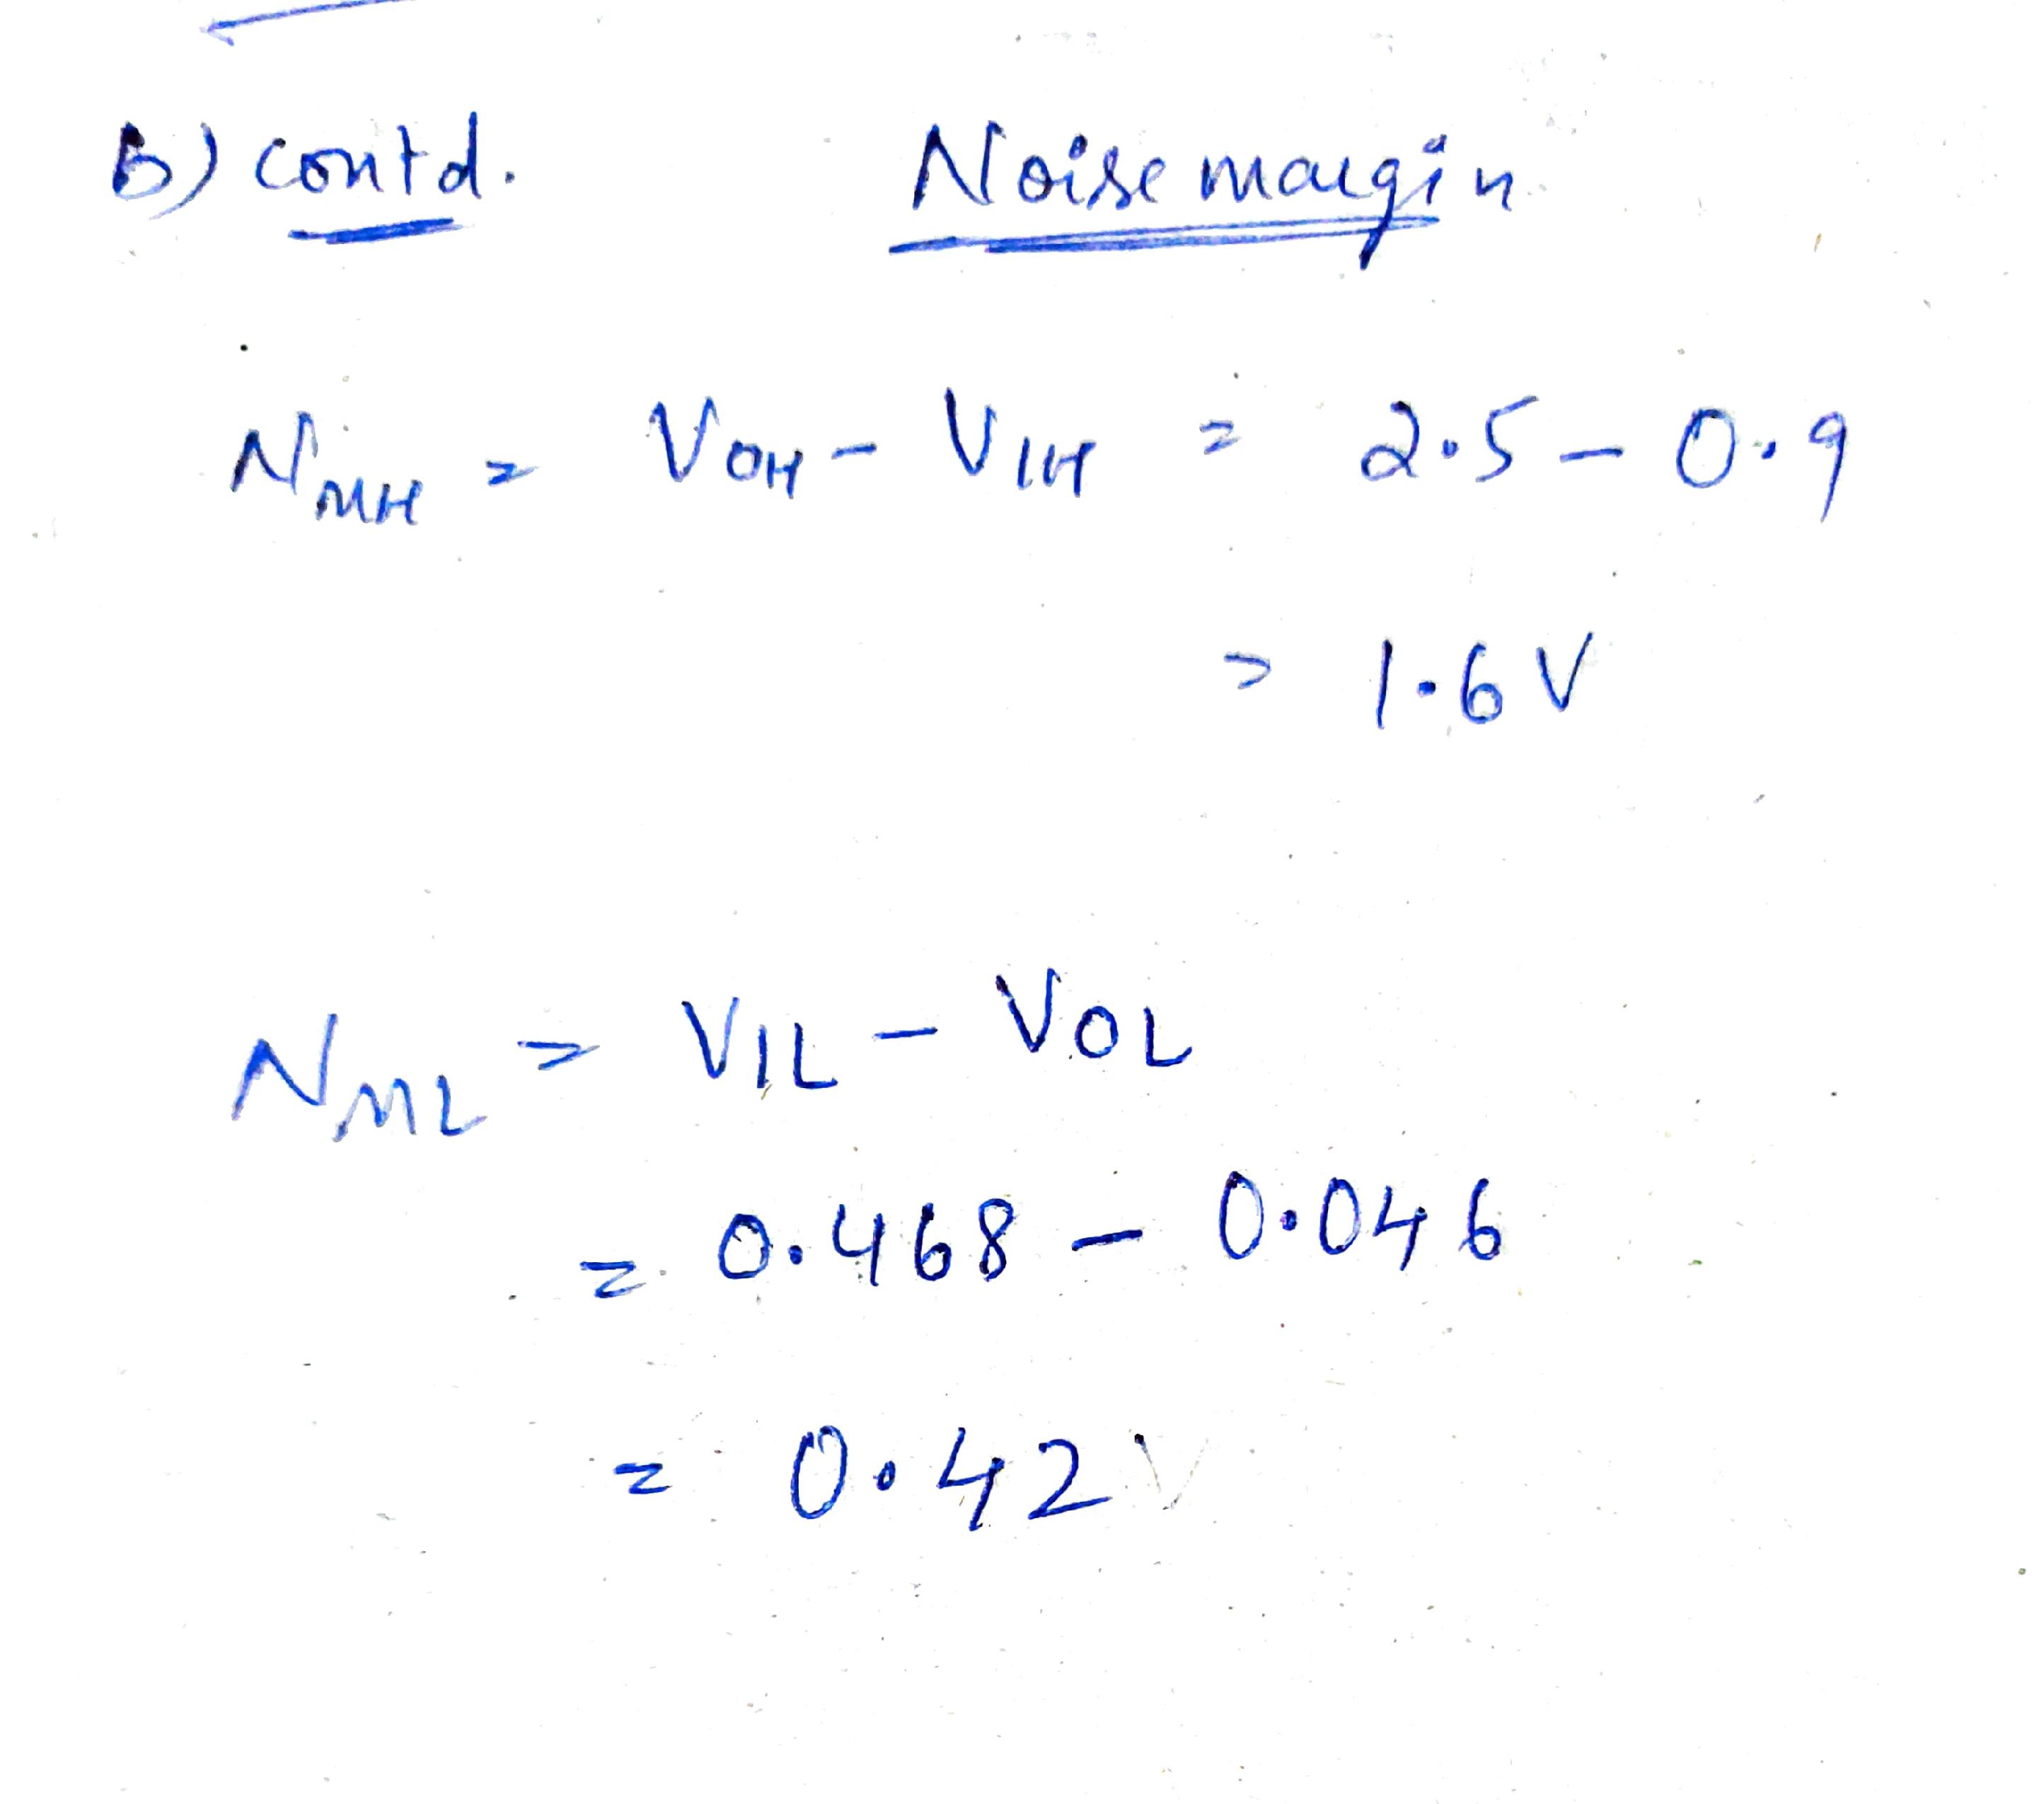 B) contd. Noise margin
NMH = VOH - VIH = 2.5 - 0.9
= 1.6 V
NML = VIL - VOL
= 0.468 - 0.046
= 0.42 V